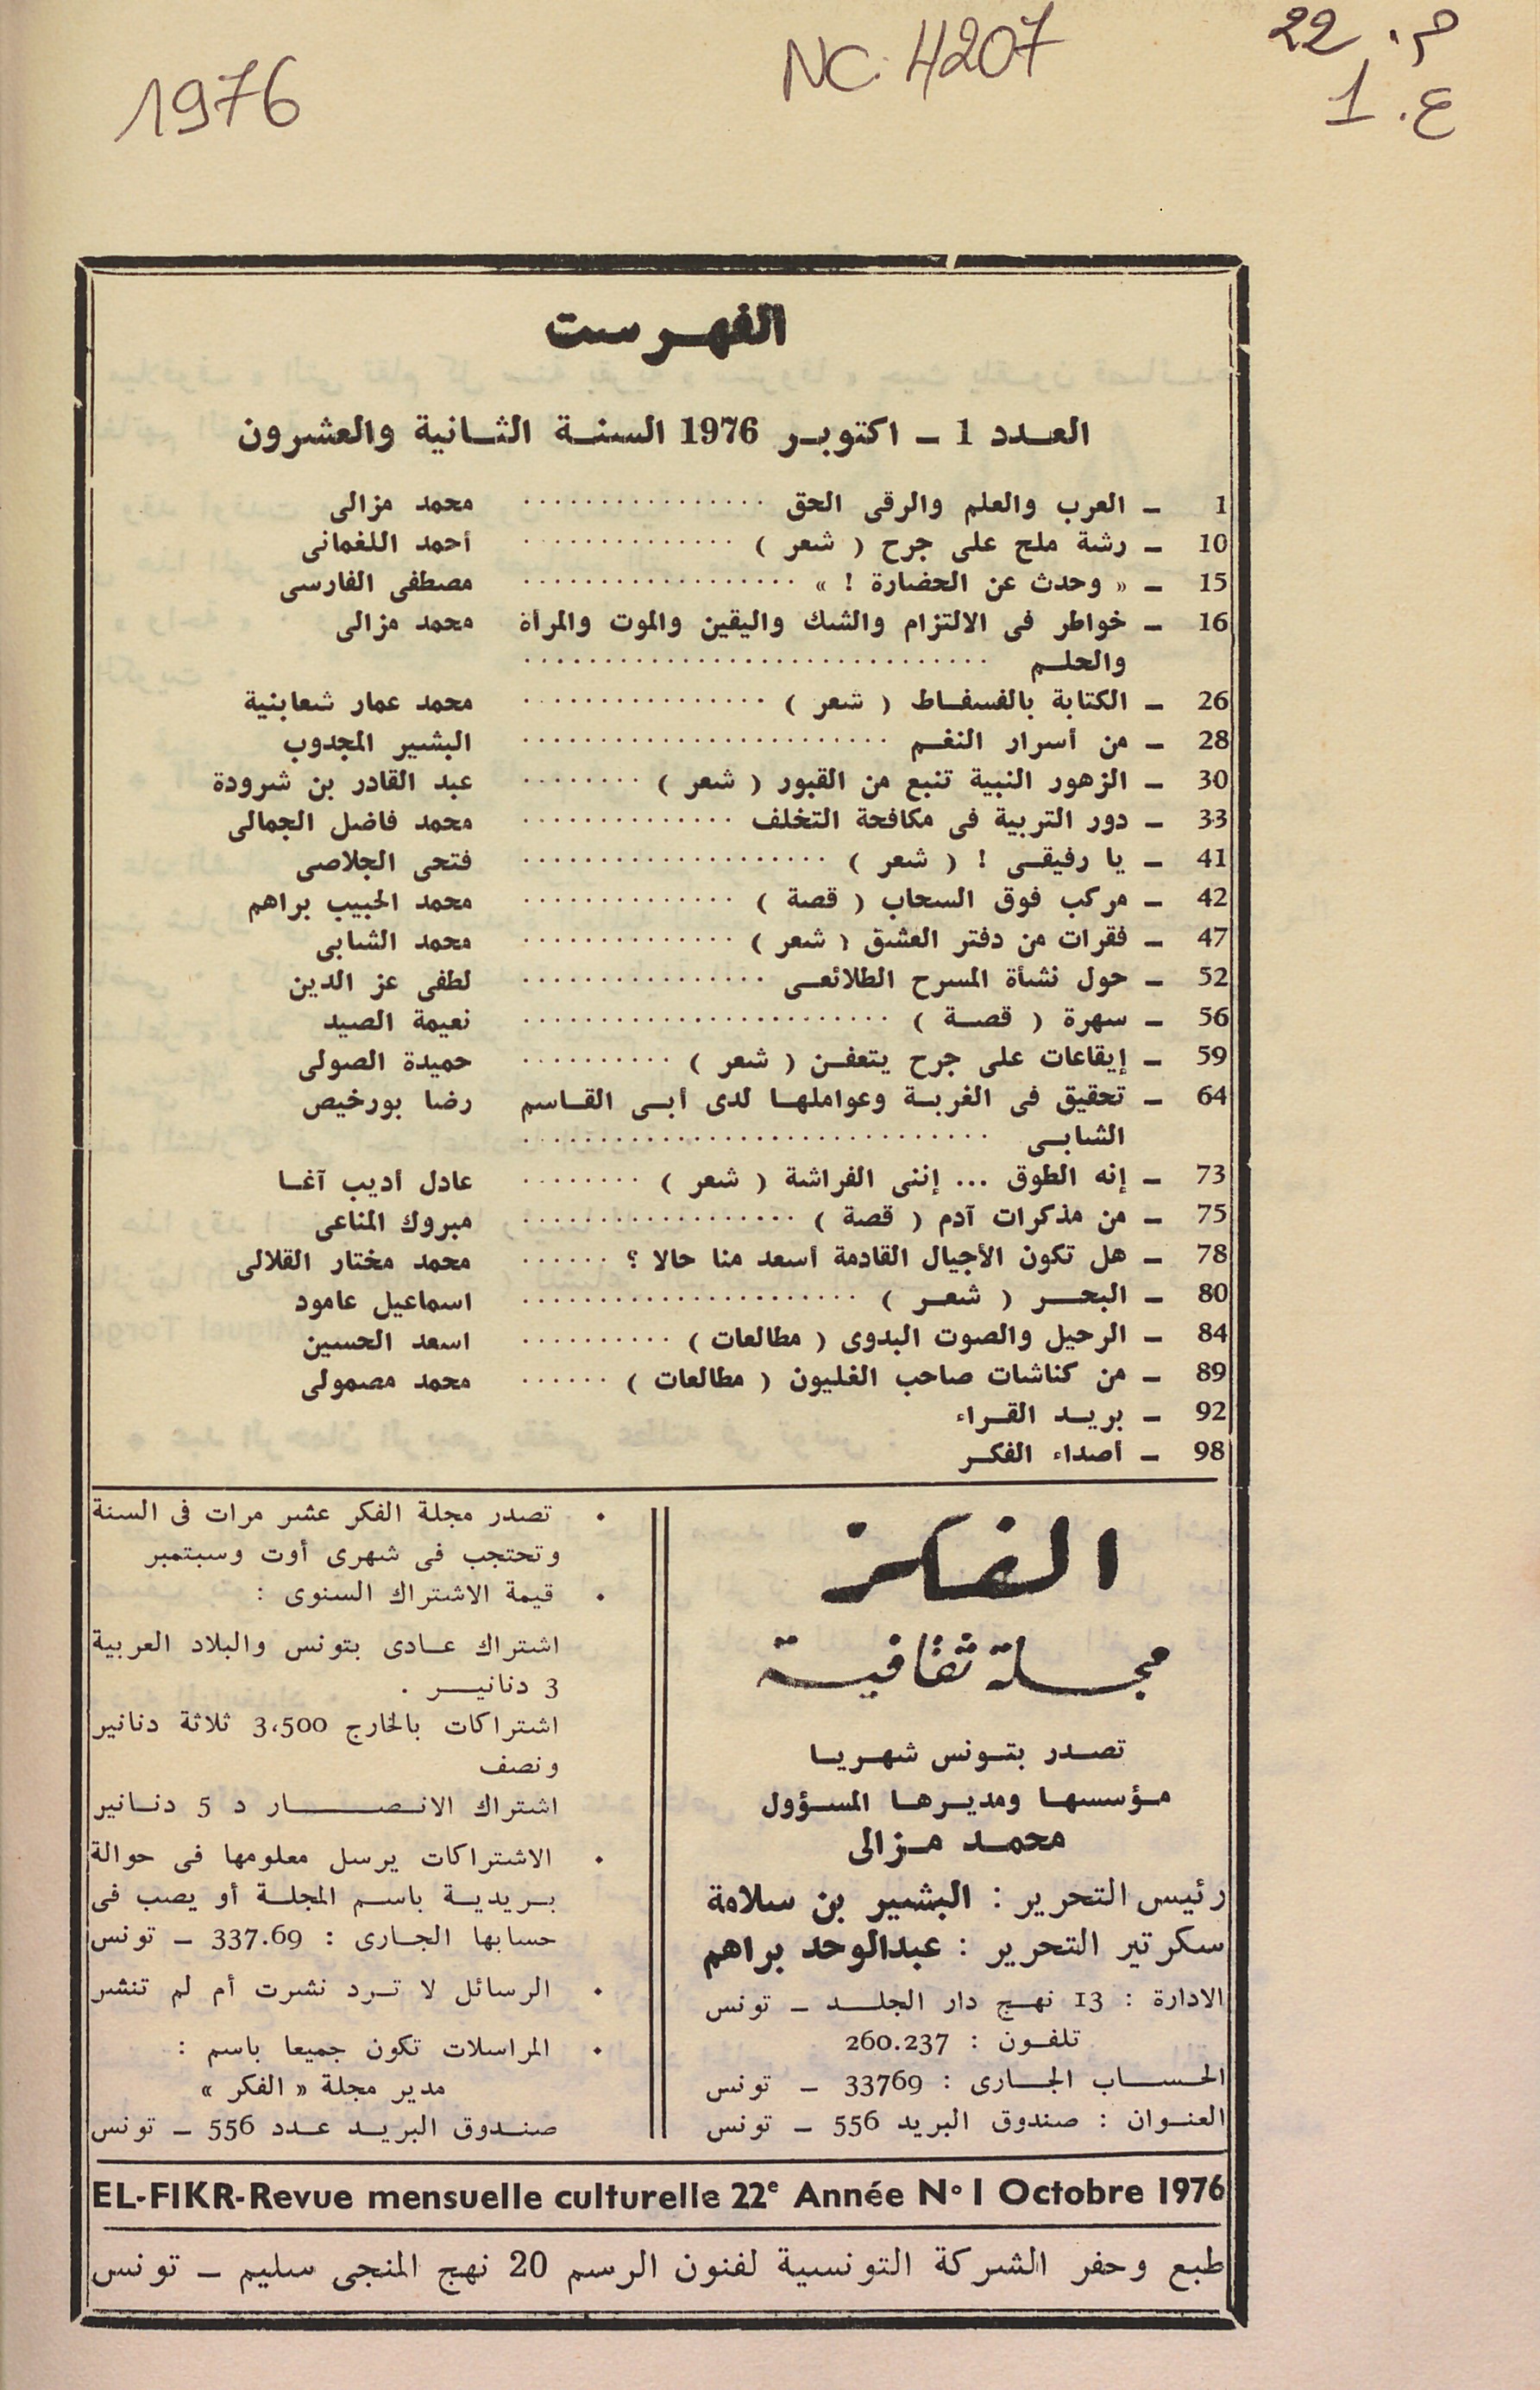 22 م.
1 ع.
NC. 4207
1976
الفهرست
العدد 1 – اكتوبر 1976 السنة الثانية والعشرون
1 – العرب والعلم والرقى الحق ................ محمد مزالى
10 – رشة ملح على جرح ( شعر ) .............. أحمد اللغمانى
15 – « وحدث عن الحضارة ! » .................. مصطفى الفارسى
16 – خواطر فى الالتزام والشك واليقين والموت والمرأة محمد مزالى
والحلم ..............................
26 – الكتابة بالفسفاط ( شعر ) ................ محمد عمار شعابنية
28 – من أسرار النغم ........................ البشير المجدوب
30 – الزهور النبية تنبع من القبور ( شعر ) ........ عبد القادر بن شرودة
33 – دور التربية فى مكافحة التخلف .............. محمد فاضل الجمالى
41 – يا رفيقى ! ( شعر ) .................... فتحى الجلاصى
42 – مركب فوق السحاب ( قصة ) .............. محمد الحبيب براهم
47 – فقرات من دفتر العشق ( شعر ) .............. محمد الشابى
52 – حول نشأة المسرح الطلائعى ................ لطفى عز الدين
56 – سهرة ( قصة ) ........................ نعيمة الصيد
59 – إيقاعات على جرح يتعفن ( شعر ) .......... حميدة الصولى
64 – تحقيق فى الغربة وعواملها لدى أبى القاسم رضا بورخيص
الشابى ..............................
73 – إنه الطوق ... إننى الفراشة ( شعر ) ........ عادل أديب آغا
75 – من مذكرات آدم ( قصة ) .................. مبروك المناعى
78 – هل تكون الأجيال القادمة أسعد منا حالا ؟ ...... محمد مختار القلالى
80 – البحر ( شعر ) ...................... اسماعيل عامود
84 – الرحيل والصوت البدوى ( مطالعات ) .......... اسعد الحسين
89 – من كناشات صاحب الغليون ( مطالعات ) ...... محمد مصمولى
92 – بريد القراء
98 – أصداء الفكر
الفكر
مجلة ثقافية
تصدر بتونس شهريا
مؤسسها ومديرها المسؤول
محمد مزالى
رئيس التحرير : البشير بن سلامة
سكرتير التحرير : عبدالوحد براهم
الادارة : 13 نهج دار الجلد – تونس
تلفون : 260.237
الحساب الجارى : 33769 – تونس
العنوان : صندوق البريد 556 – تونس
• تصدر مجلة الفكر عشر مرات فى السنة
وتحتجب فى شهرى أوت وسبتمبر
• قيمة الاشتراك السنوى :
اشتراك عادى بتونس والبلاد العربية
3 دنانير .
اشتراكات بالخارج 3،500 ثلاثة دنانير
ونصف
اشتراك الانصار د 5 دنانير
• الاشتراكات يرسل معلومها فى حوالة
بريدية باسم المجلة أو يصب فى
حسابها الجارى : 337.69 – تونس
• الرسائل لا ترد نشرت أم لم تنشر
• المراسلات تكون جميعا باسم :
مدير مجلة « الفكر »
صندوق البريد عدد 556 – تونس
EL-FIKR-Revue mensuelle culturelle 22e Année N° 1 Octobre 1976
طبع وحفر الشركة التونسية لفنون الرسم 20 نهج المنجى سليم – تونس